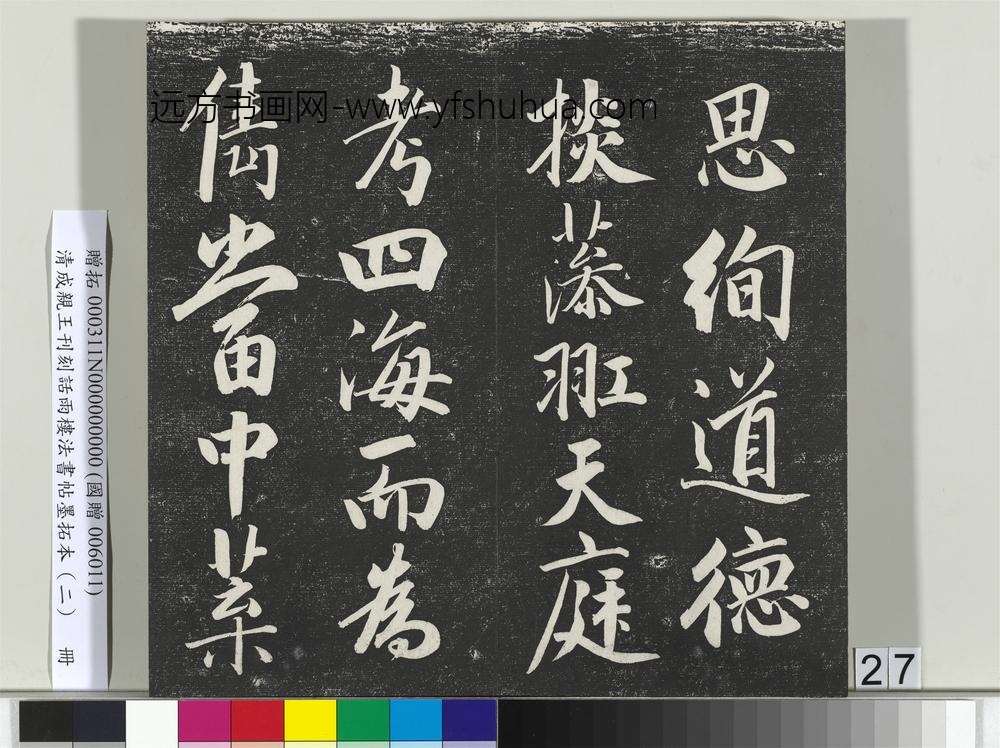 思絢道德
掞藻羾天庭
考四海而為
儁當中葉
远方书画网-www.yfshuhua.com
贈拓 000311N000000000 (國贈 006011)
清成親王刊刻話雨樓法書帖墨拓本（二） 冊
27